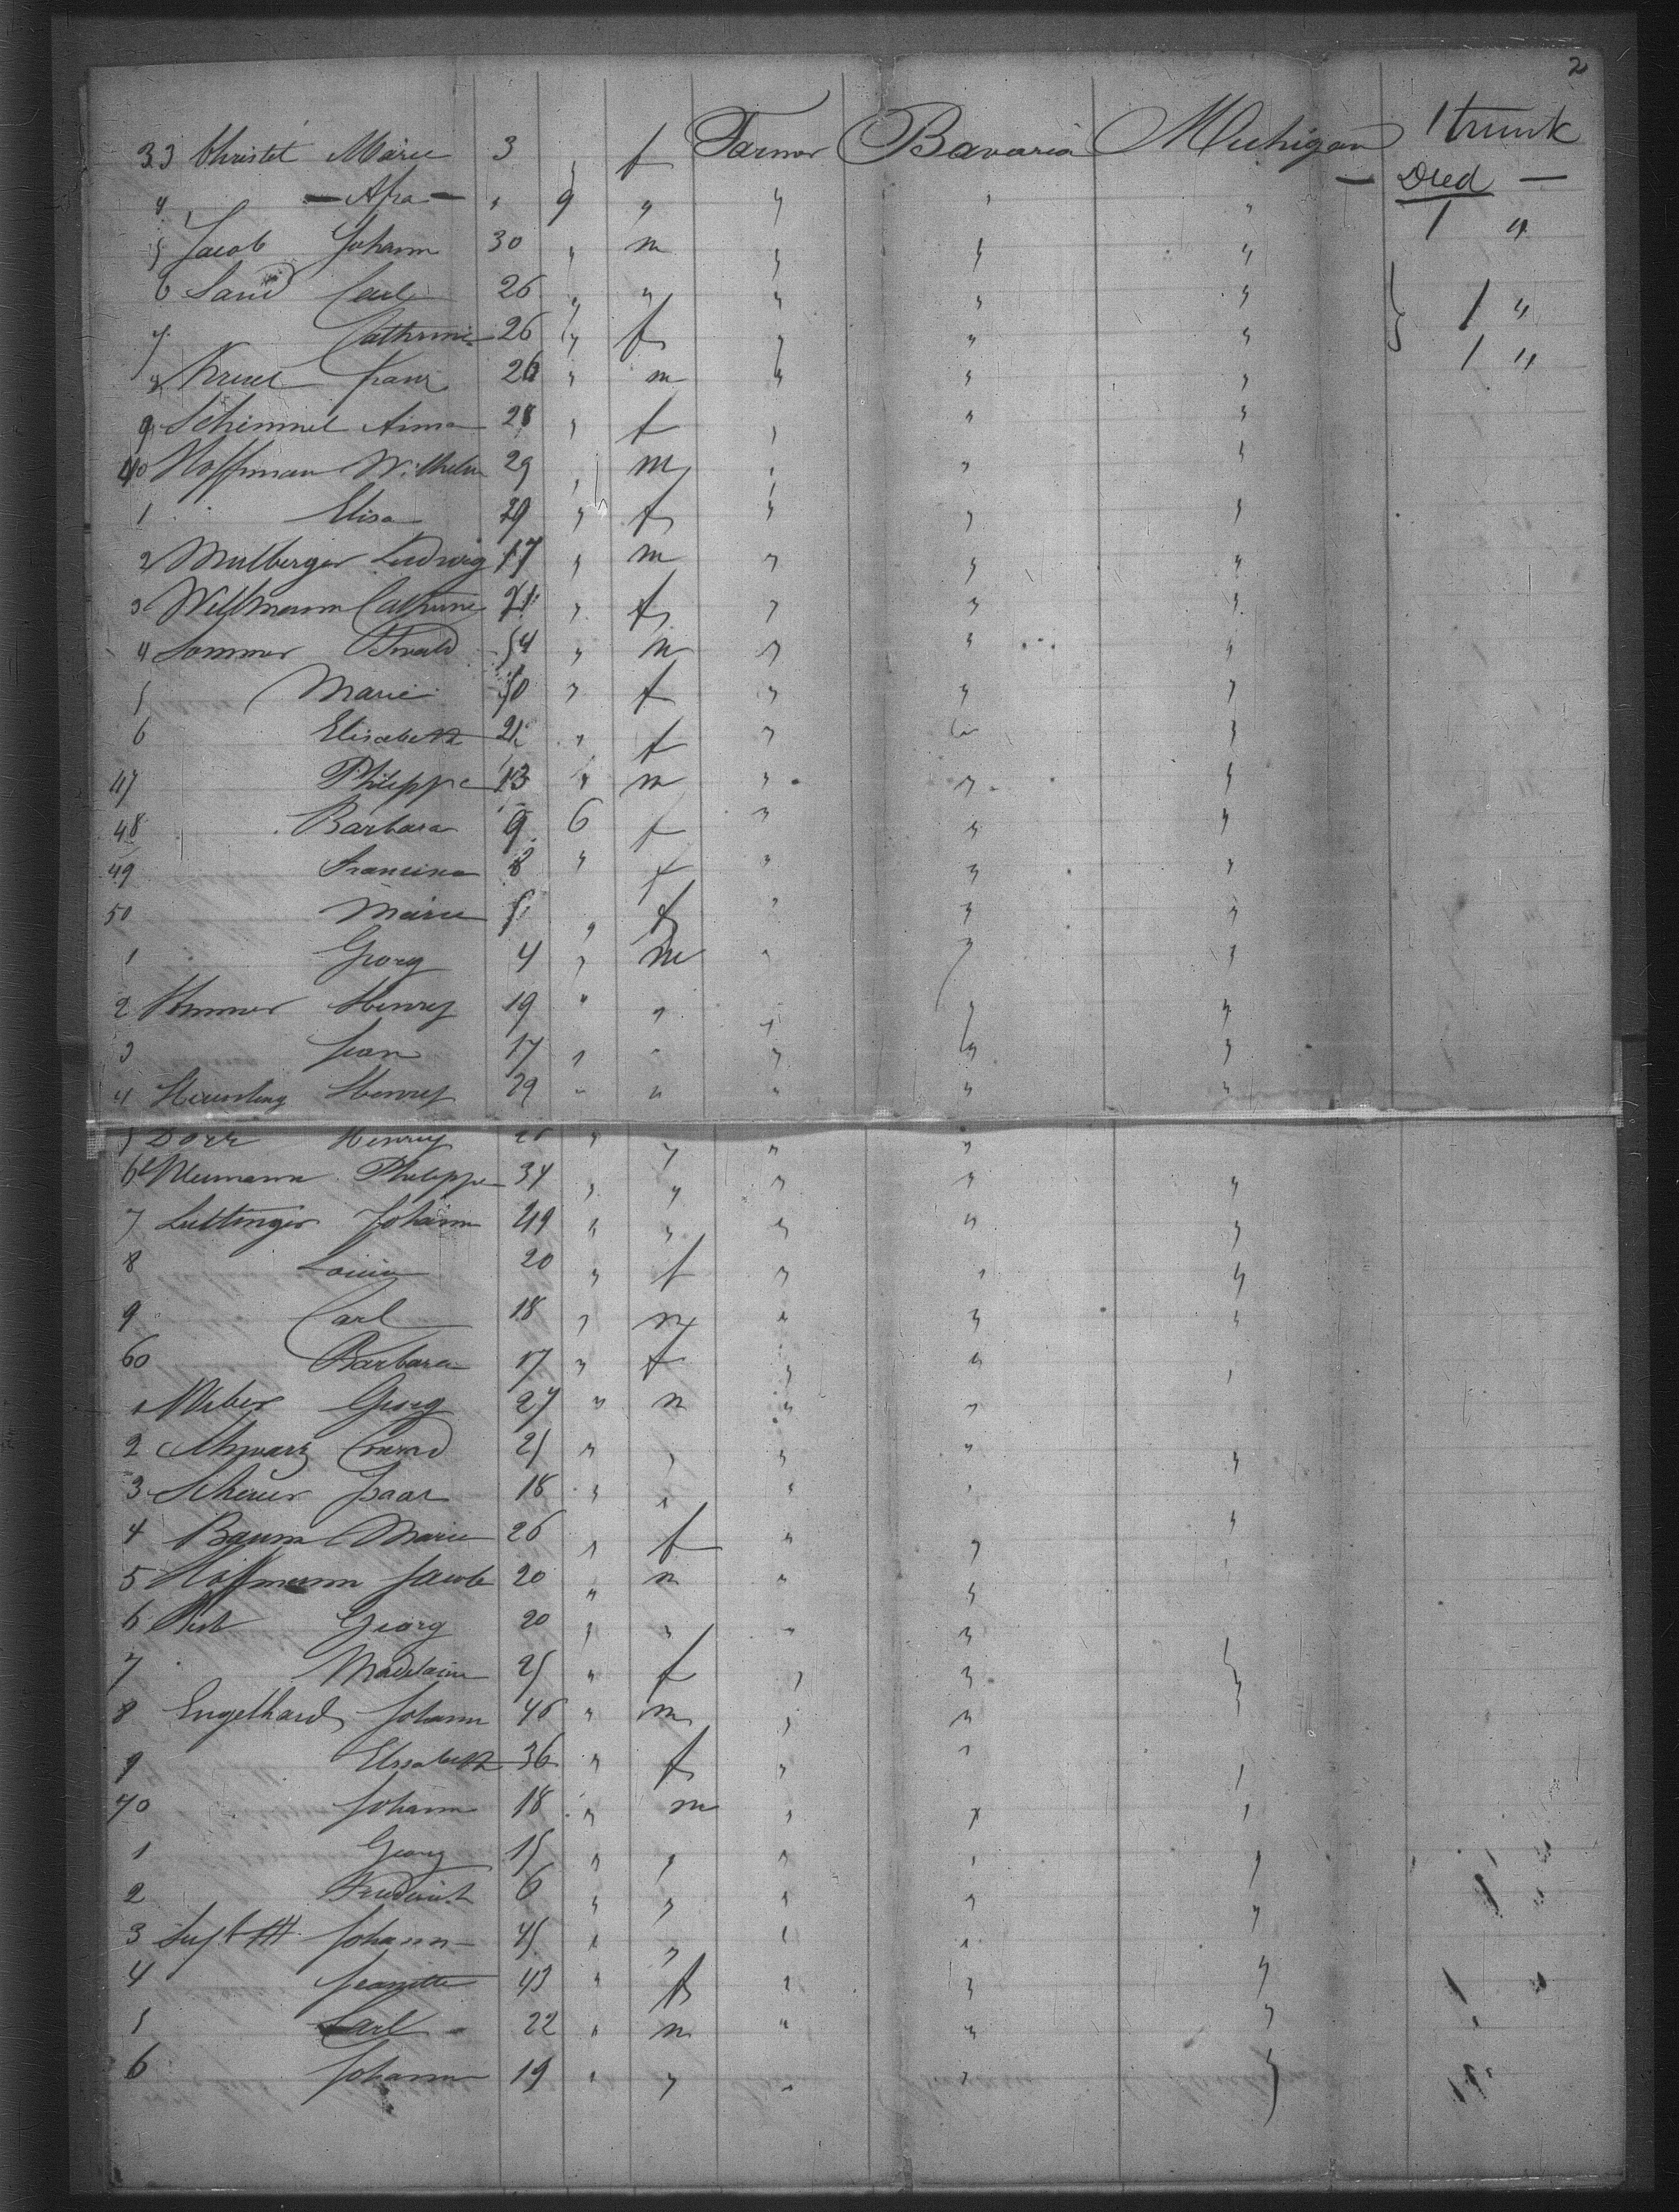 2
33 Christel Marie 3 " f Farmer Bavaria Michigan 1 trunk
4 — Afra — " 9 " " " " — Died —
5 Jacob Johann 30 " m " " " 1 "
6 Sand Carl 26 " " " " " 1 "
7 Cathrine 26 " f " " "
8 Franz 26 " m " " " 1 "
9 Schimmel Anna 28 " f " " "
40 Hoffman Wilhelm 29 " m " " "
1 Elisa 29 " f " " "
2 Mulberger Ludwig 17 " m " " "
3 Willmann Cathrine 21 " f " " "
4 Sommer 54 " m " " "
5 Marie 50 " f " " "
6 Elisabeth 21 " f " " "
47 Philippe 13 " m " " "
48 Barbara 9 6 f " " "
49 Francisca 8 " f " " "
50 Marie 5 " f " " "
1 Georg 4 " m " " "
2 Henry 19 " " " " "
3 Jean 17 " " " " "
4 Henry 29 " " " " "
5 Dorr Henry " " " "
6 Neumann Philippe 34 " " " " "
7 Luttinger Johann 49 " " " " "
8 Louise 20 " f " " "
9 Carl 18 " m " " "
60 Barbara 17 " f " " "
1 Weber Georg 27 " m " "
2 Schwarz Conrad 25 " " " " "
3 Scheuer Isaac 18 " " " "
4 Baum Marie 26 " f " " "
5 Hoffmann Jacob 20 " m " "
6 Georg 20 " " " "
7 Madelaine 25 " f " " "
8 Engelhard Johann 46 " m " " "
9 Elisabeth 36 " f " "
70 Johann 18 " m " " "
1 Georg 15 " " " " "
2 Frederick 6 " " " " " 1 "
3 Johann 45 " " " " "
4 Jeanette 43 " f " " " 1 "
5 Carl 22 " m " " "
6 Johann 19 " " " "